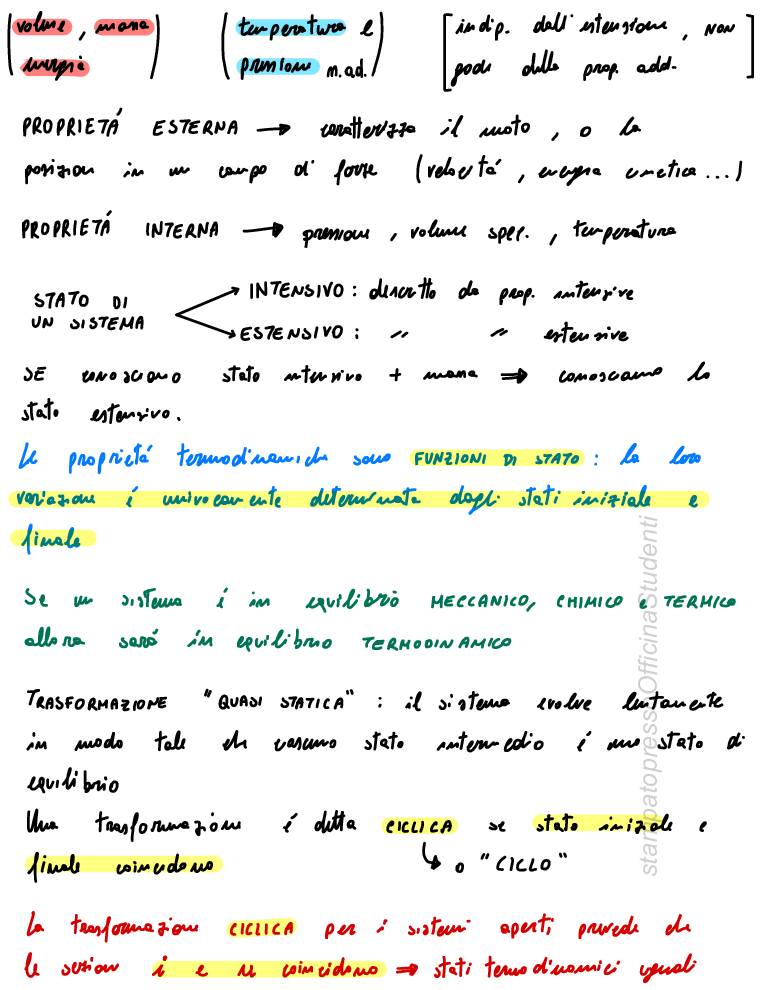 (volume, massa (temperatura e [indip. dall'estensione, NON
energia) pressione n.ad.) gode della prop. add.]
PROPRIETÁ ESTERNA → caratterizza il moto, o la
posizion in un campo di forze (velocitá, energia cinetica...)
PROPRIETÁ INTERNA → pressione, volume spec., temperatura
STATO DI UN SISTEMA
INTENSIVO: descritto da prop. intensive
ESTENSIVO: " " estensive
SE conosciamo stato intensivo + massa ⇒ conosciamo lo
stato estensivo.
Le proprietá termodinamiche sono FUNZIONI DI STATO: la loro
variazione é univocamente determinata dagli stati iniziale e
finale
Se un sistema é in equilibrio MECCANICO, CHIMICO e TERMICO
allora sará in equilibrio TERMODINAMICO
TRASFORMAZIONE "QUASI STATICA": il sistema evolve lentamente
in modo tale che ciascuno stato intermedio é uno stato di
equilibrio
Una trasformazione é detta CICLICA se stato iniziale e
finale coincidono
↳ o "CICLO"
La trasformazione CICLICA per i sistemi aperti prevede che
le sezioni i e u coincidono ⇒ stati termodinamici uguali
stampatopressoOfficinaStudenti